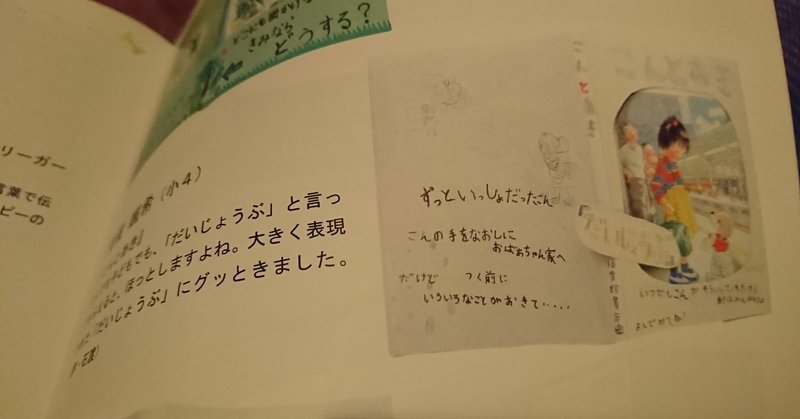 リーガー
言葉で伝
ピーの
きみなら、
どうする？
希（小4）
でも、「だいじょうぶ」と言っ
ると、ほっとしますよね。大きく表現
「だいじょうぶ」にグッときました。
石渡）
ずっといっしょだったこん
こんの手をなおしに
おばあちゃん家へ
だけど つく前に
いろいろなことがおきて‥‥‥
こんとあき
こんとあき
だいじょうぶ
いつでもこんが
よんでみてね!